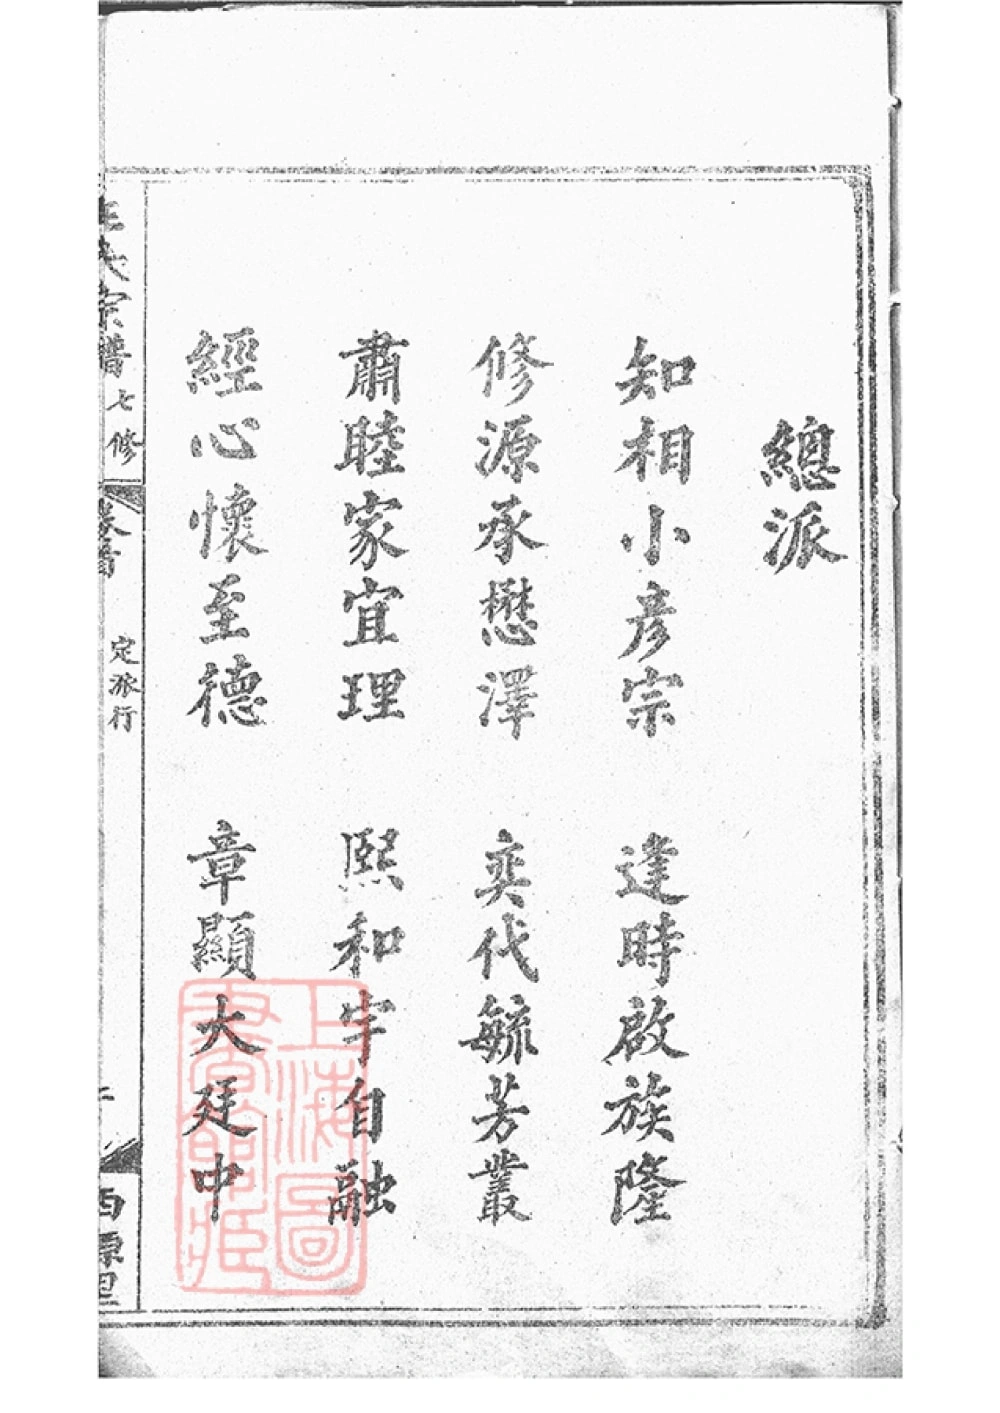 總派
知相小彥宗 逢時啟族隆
修源承懋澤 奕代毓芳叢
肅睦家宜理 熙和宇自融
經心懷至德 章顯大廷中
宗譜 七修
卷首
定派行
西源里
上海圖
書館藏